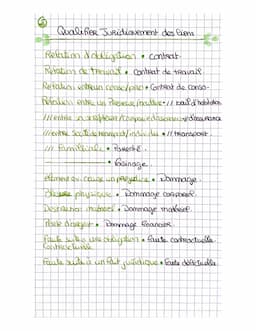 Qualifier Juridiquement des liens
Relation d'obligation • contrat.
Relation de travail • Contrat de travail
Relation vendeur conso/pro • Contrat de conso.
Relation entre un Preneur/bailleur • // bail d'habitation
/// entre souscripteur/compagnie d'assurance • // d'assurance
/// entre Société de transport/individu • // transport.
/// Familiale • Parenté.
• Voisinage.
élément qui cause un préjudice • Dommage.
physique • Dommage corporel
Destruction matériel • Dommage matériel.
Perte d'argent • Dommage financier.
Faute suite à une obligation • Faute contractuelle
contractuelle
Faute suite à un fait juridique • Faute délictuelle